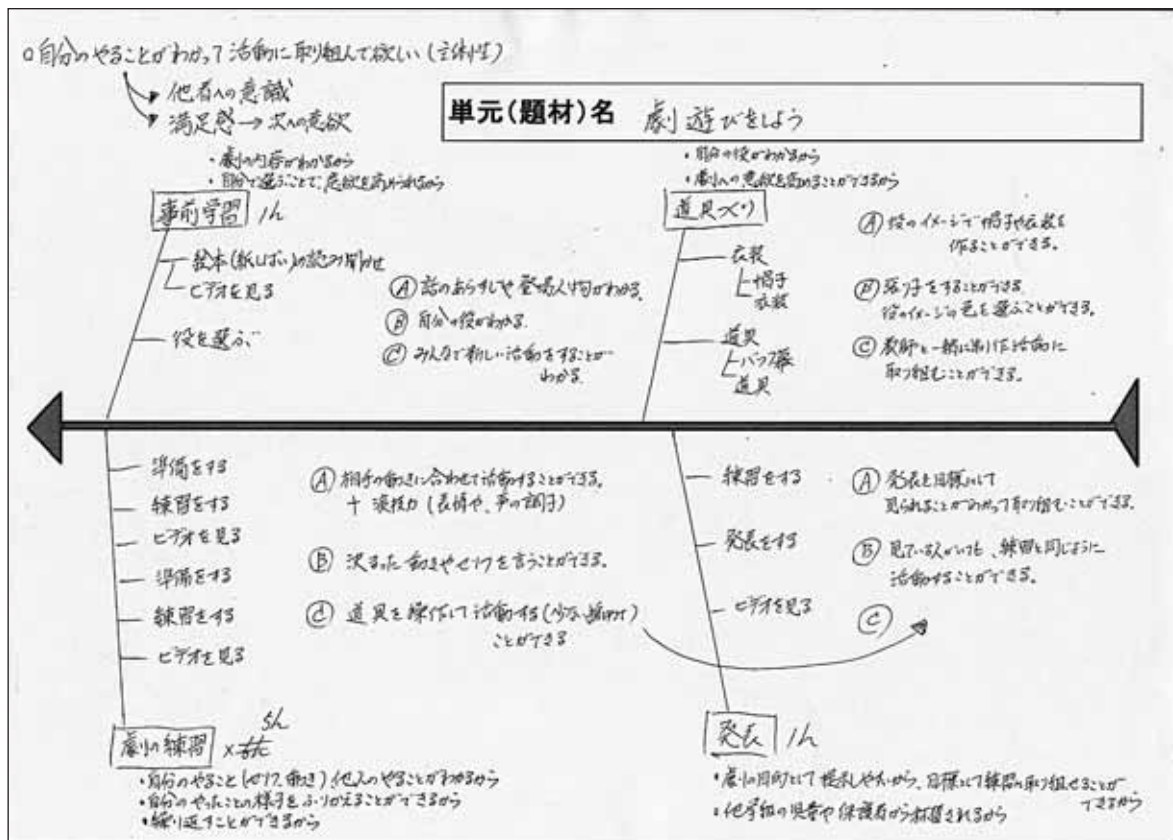 ○自分のやることがわかって活動に取り組んで欲しい(主体性)
他者への意識
満足感→次への意欲
単元(題材)名 劇遊びをしよう
・劇の内容がわかるから
・自分で選ぶことで、意欲を高められるから
事前学習 1h
絵本(紙しばい)の読み聞かせ
ビデオを見る
役を選ぶ
Ⓐ 話のあらすじや登場人物がわかる。
Ⓑ 自分の役がわかる。
Ⓒ みんなで新しい活動をすることが
わかる
・自分の役がわかるから
・劇への意欲を高めることができるから
道具づくり
衣装
帽子
衣装
道具
バック幕
道具
Ⓐ 役のイメージで帽子や衣装を
作ることができる。
Ⓑ をすることができる。
役のイメージの色を選ぶことができる。
Ⓒ 教師と一緒に制作活動に
取り組むことができる。
準備をする
練習をする
ビデオを見る
準備をする
練習をする
ビデオを見る
Ⓐ 相手の動きに合わせて活動することができる。
+ 演技力(表情や、声の調子)
Ⓑ 決まった動きやセリフを言うことができる。
Ⓒ 道具を操作して活動する
ことができる
劇の練習 × 5h
・自分のやること(セリフ、動き)他人のやることがわかるから
・自分のやったことの様子をふりかえることができるから
・繰り返すことができるから
練習をする
発表をする
ビデオを見る
Ⓐ 発表を目標にして
見られることがわかって取り組むことができる。
Ⓑ 見ている人がいても、練習と同じように
活動することができる。
Ⓒ
発表 1h
・劇の目的として提示しやすいから、目標にして練習に取り組ませることが
できるから
・他学級の児童や保護者から称賛されるから